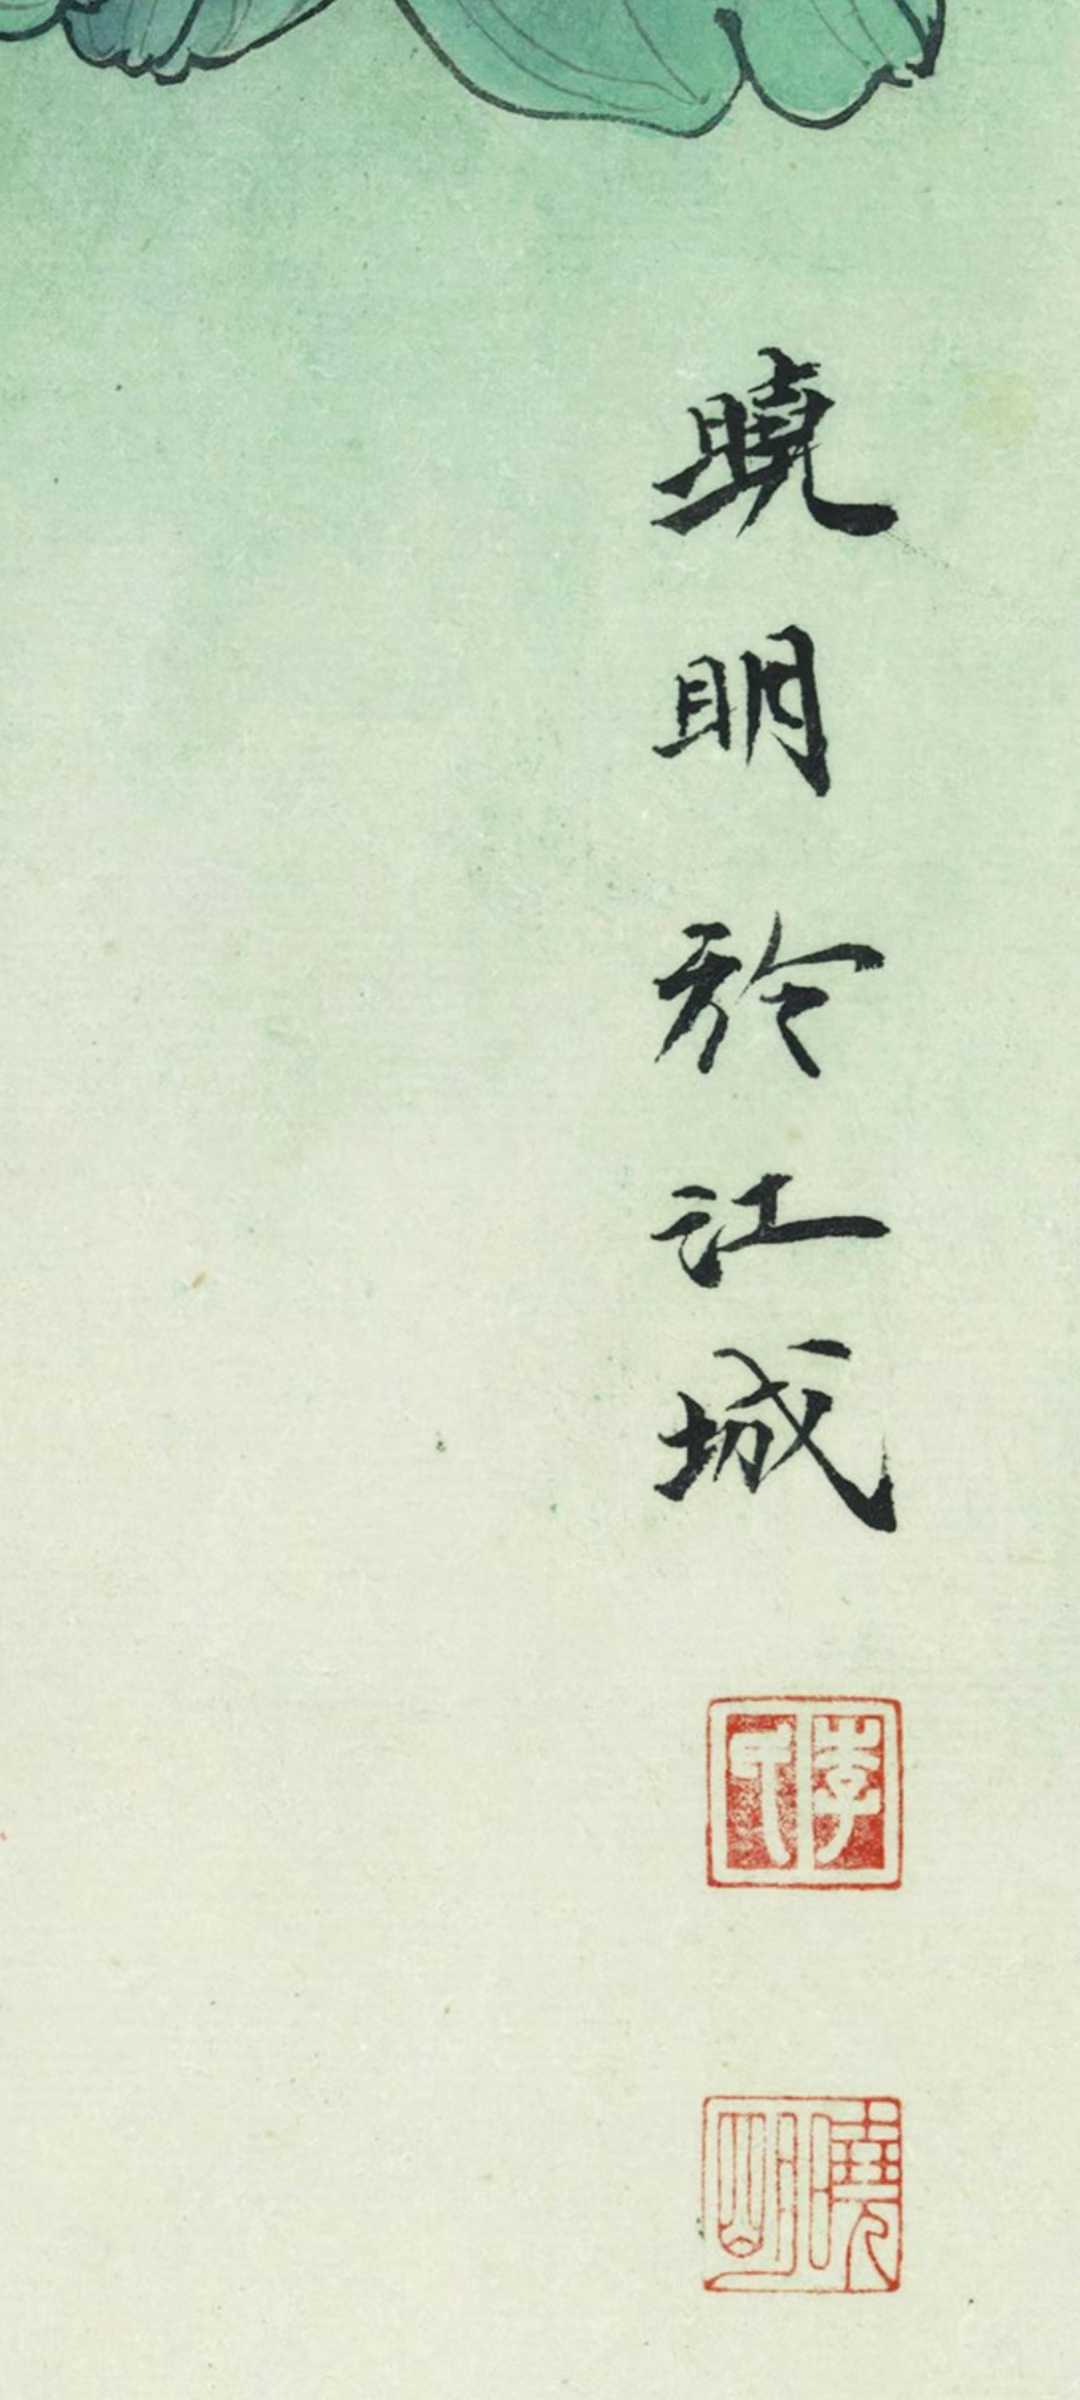 曉明於江城
李氏
曉明